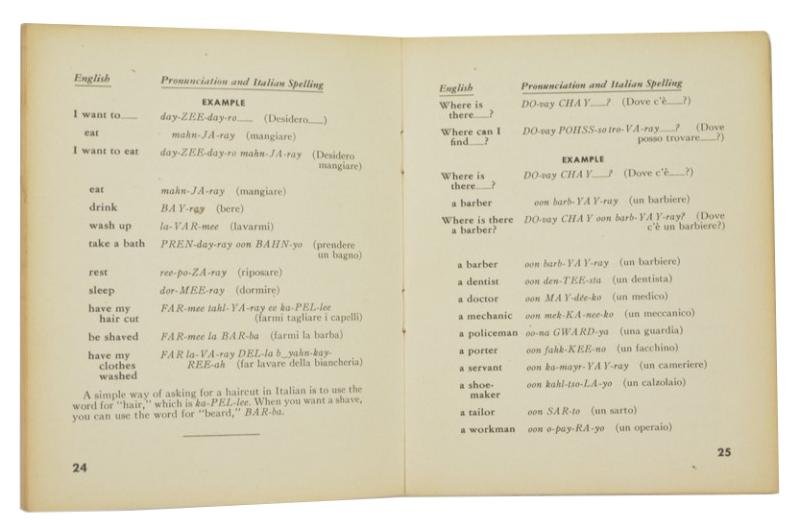 English Pronunciation and Italian Spelling
EXAMPLE
I want to___ day-ZEE-day-ro___ (Desidero___)
eat mahn-JA-ray (mangiare)
I want to eat day-ZEE-day-ro mahn-JA-ray (Desidero
mangiare)
eat mahn-JA-ray (mangiare)
drink BAY-ray (bere)
wash up la-VAR-mee (lavarmi)
take a bath PREN-day-ray oon BAHN-yo (prendere
un bagno)
rest ree-po-ZA-ray (riposare)
sleep dor-MEE-ray (dormire)
have my FAR-mee tahl-YA-ray ee ka-PEL-lee
hair cut (farmi tagliare i capelli)
be shaved FAR-mee la BAR-ba (farmi la barba)
have my FAR la-VA-ray DEL-la b_yahn-kay-
clothes REE-ah (far lavare della biancheria)
washed
A simple way of asking for a haircut in Italian is to use the
word for "hair," which is ka-PEL-lee. When you want a shave,
you can use the word for "beard," BAR-ba.
24
English Pronunciation and Italian Spelling
Where is DO-vay CHAY___? (Dove c'è___?)
there___?
Where can I DO-vay POHSS-so tro-VA-ray___? (Dove
find___? posso trovare___?)
EXAMPLE
Where is DO-vay CHAY___? (Dove c'è___?)
there___?
a barber oon barb-YAY-ray (un barbiere)
Where is there DO-vay CHAY oon barb-YAY-ray? (Dove
a barber? c'è un barbiere?)
a barber oon barb-YAY-ray (un barbiere)
a dentist oon den-TEE-sta (un dentista)
a doctor oon MAY-dee-ko (un medico)
a mechanic oon mek-KA-nee-ko (un meccanico)
a policeman oo-na GWARD-ya (una guardia)
a porter oon fahk-KEE-no (un facchino)
a servant oon ka-mayr-YAY-ray (un cameriere)
a shoe- oon kahl-tso-LA-yo (un calzolaio)
maker
a tailor oon SAR-to (un sarto)
a workman oon o-pay-RA-yo (un operaio)
25